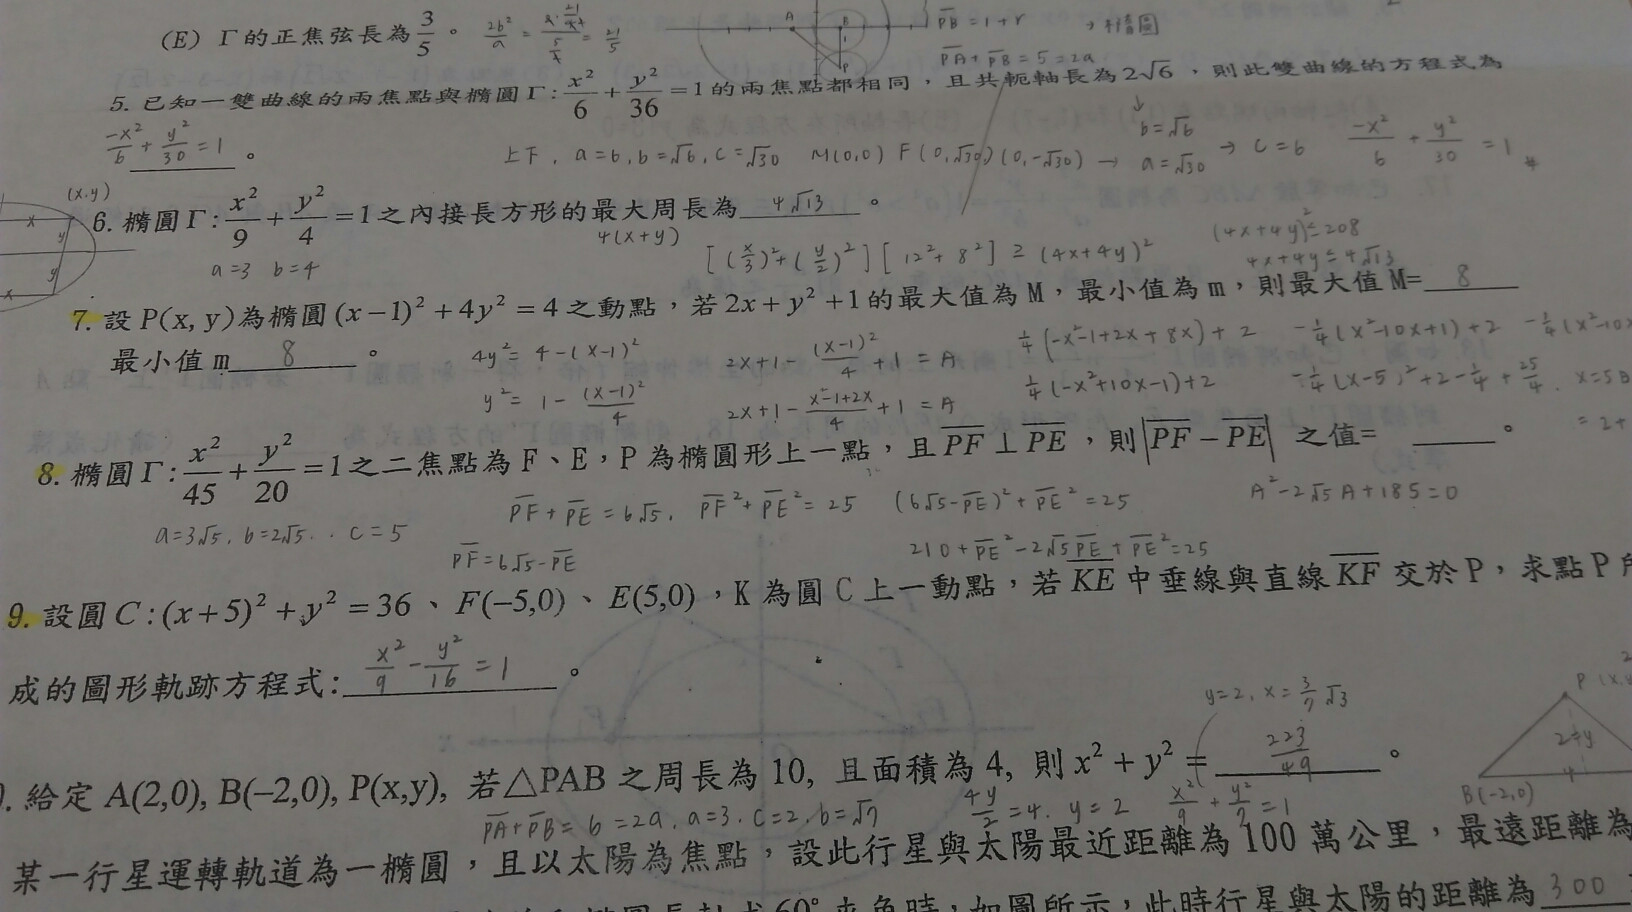 (E) Γ的正焦弦長為3/5。 2b²/a = 21/5
PB = 1 + r → 橢圓
PA + PB = 5 = 2a
5. 已知一雙曲線的兩焦點與橢圓Γ: x²/6 + y²/36 = 1的兩焦點都相同，且共軛軸長為2√6，則此雙曲線的方程式為
-x²/6 + y²/30 = 1 。
上下, a=6, b=√6, c=√30 M(0,0) F(0,√30)(0,-√30) → b=√6 a=√30 → c=6 -x²/6 + y²/30 = 1 #
(x,y)
6. 橢圓Γ: x²/9 + y²/4 = 1之內接長方形的最大周長為 4√13 。
4(x+y)
a=3 b=4
[(x/3)²+(y/2)²][12²+8²] ≥ (4x+4y)²
(4x+4y)² ≤ 208
4x+4y ≤ 4√13
7. 設P(x, y)為橢圓(x−1)² + 4y² = 4之動點，若2x + y² +1的最大值為M，最小值為m，則最大值M= 8
最小值m 8 。
4y² = 4-(x-1)² 2x+1-(x-1)²/4+1 = A 1/4(-x²-1+2x+8x)+2 -1/4(x²-10x+1)+2
y² = 1-(x-1)²/4 2x+1-x²-1+2x/4+1 = A 1/4(-x²+10x-1)+2 -1/4(x-5)²+2-1/4+25/4
8. 橢圓Γ: x²/45 + y²/20 = 1之二焦點為F、E，P為橢圓形上一點，且PF ⊥ PE，則|PF − PE| 之值= 。
a=3√5, b=2√5, c=5
PF+PE=6√5, PF²+PE²=25 (6√5-PE)²+PE²=25 A²-2√5A+185=0
PF=6√5-PE 210+PE²-2√5PE+PE²=25
9. 設圓C:(x+5)² + y² = 36、F(−5,0)、E(5,0)，K為圓C上一動點，若KE中垂線與直線KF交於P，求點P
成的圖形軌跡方程式: x²/9 - y²/16 = 1 。
y=2, x=3/7√3
. 給定A(2,0), B(−2,0), P(x,y), 若△PAB之周長為10, 且面積為4, 則x² + y² = 223/49 。
PA+PB=6=2a, a=3, c=2, b=√7 4y/2=4, y=2 x²/9+y²/7=1
B(-2,0)
某一行星運轉軌道為一橢圓，且以太陽為焦點，設此行星與太陽最近距離為100萬公里，最遠距離為
60°夾角時，如圖所示，此時行星與太陽的距離為 300